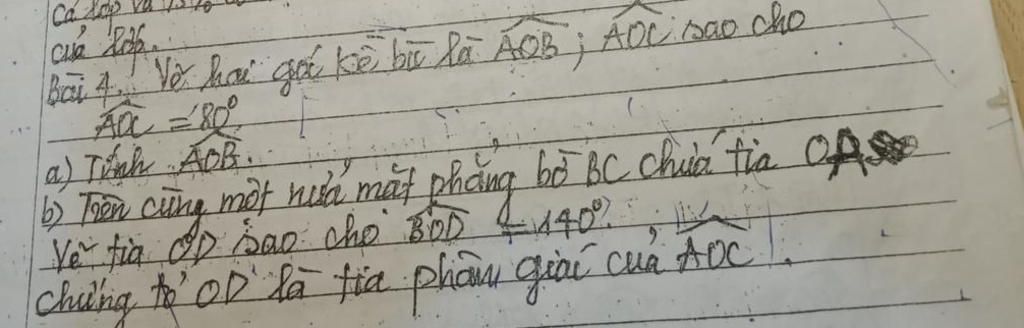 Cả lớp và 75%
của lớp.
Bài 4. Vẽ hai góc kề bù là AOB; AOC sao cho
AOC = 80°
a) Tính AOB.
b) Trên cùng một nửa mặt phẳng bờ BC chứa tia OA
Vẽ tia OD sao cho BOD = 140°.
chứng tỏ OD là tia phân giác của AOC.